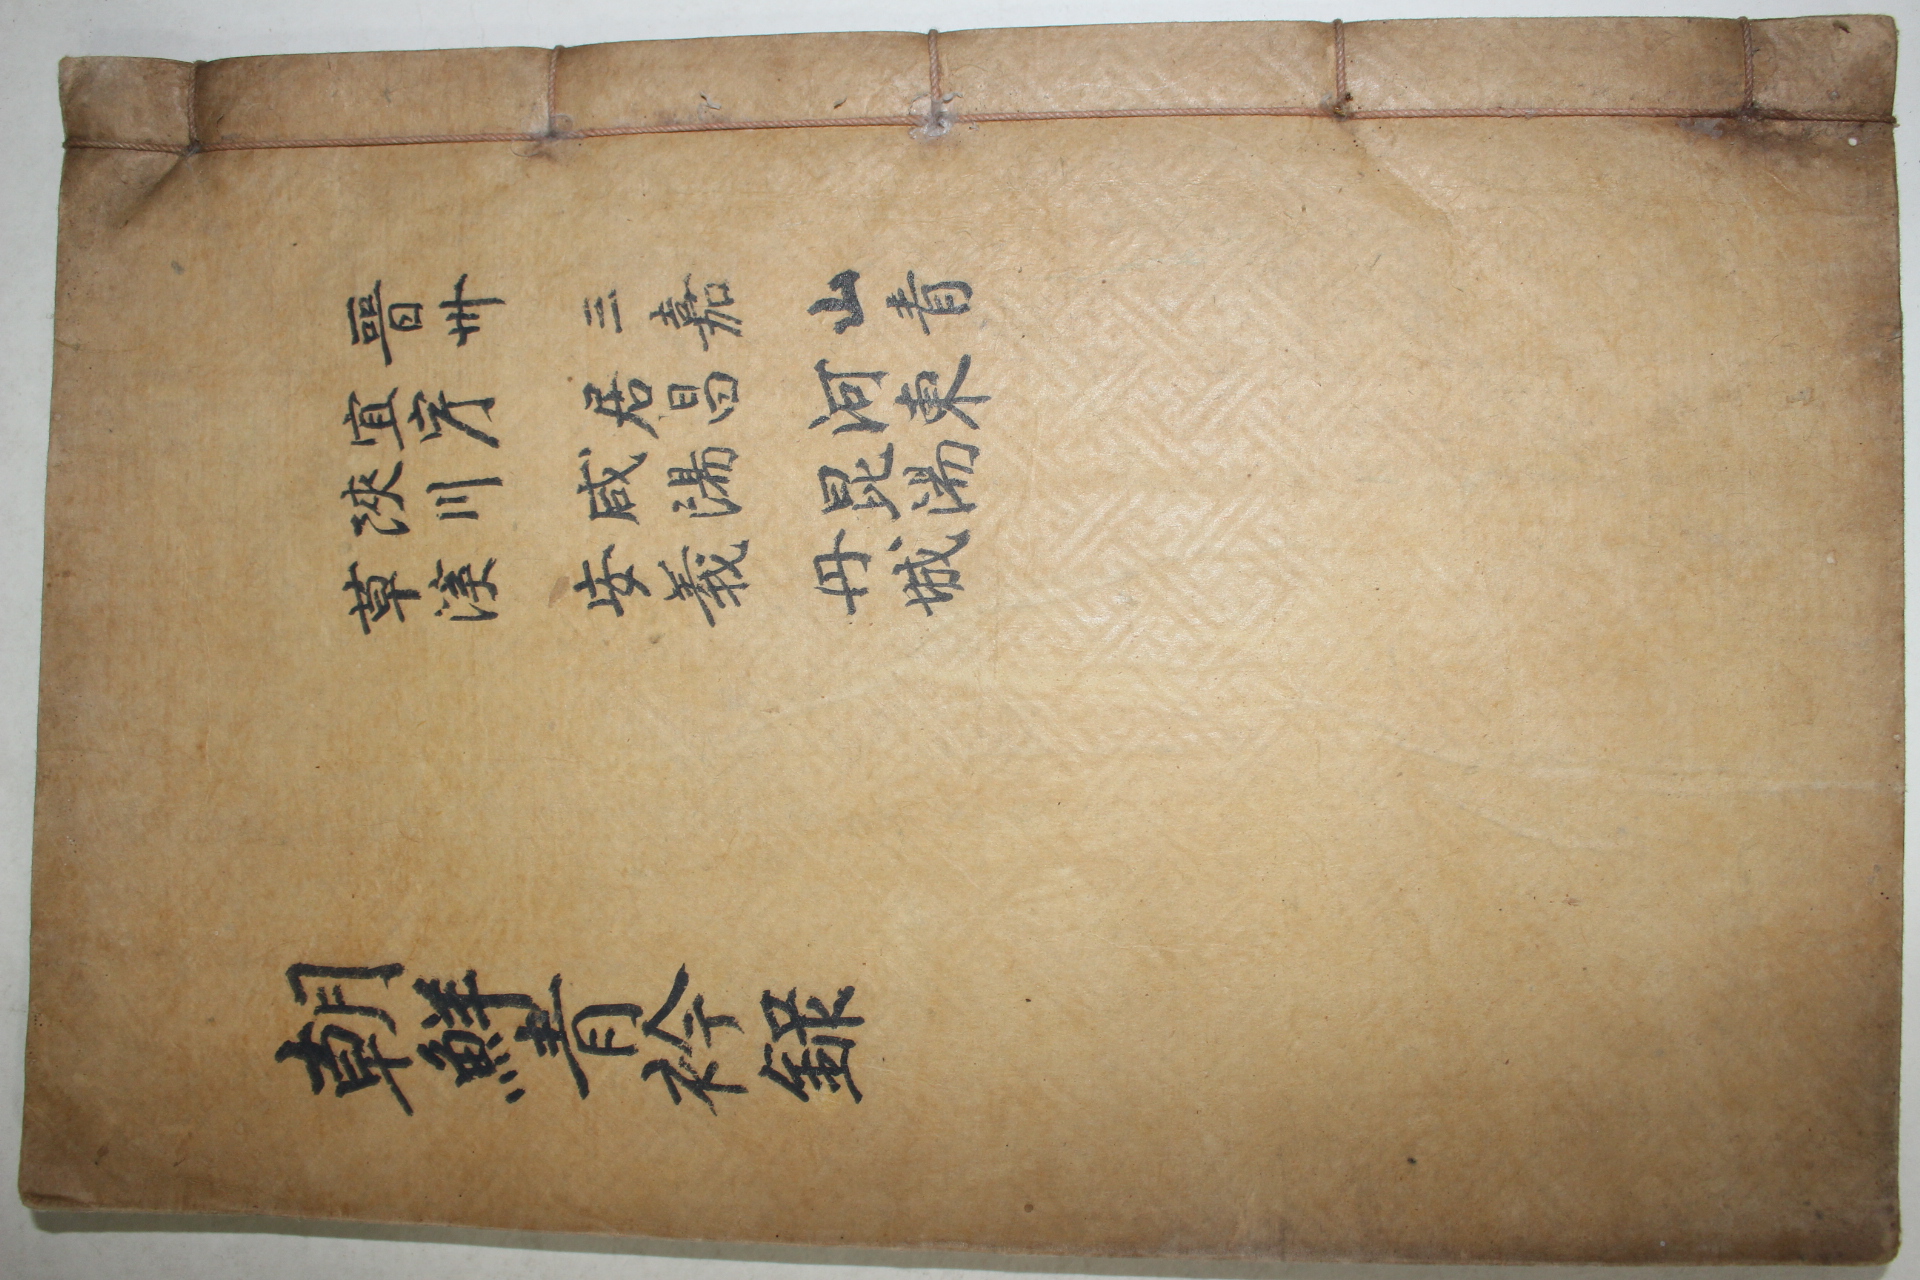 晉州 三嘉 山青
宜宁 居昌 河東
陜川 咸陽 昆陽
草溪 安義 丹城
朝鮮青衿録